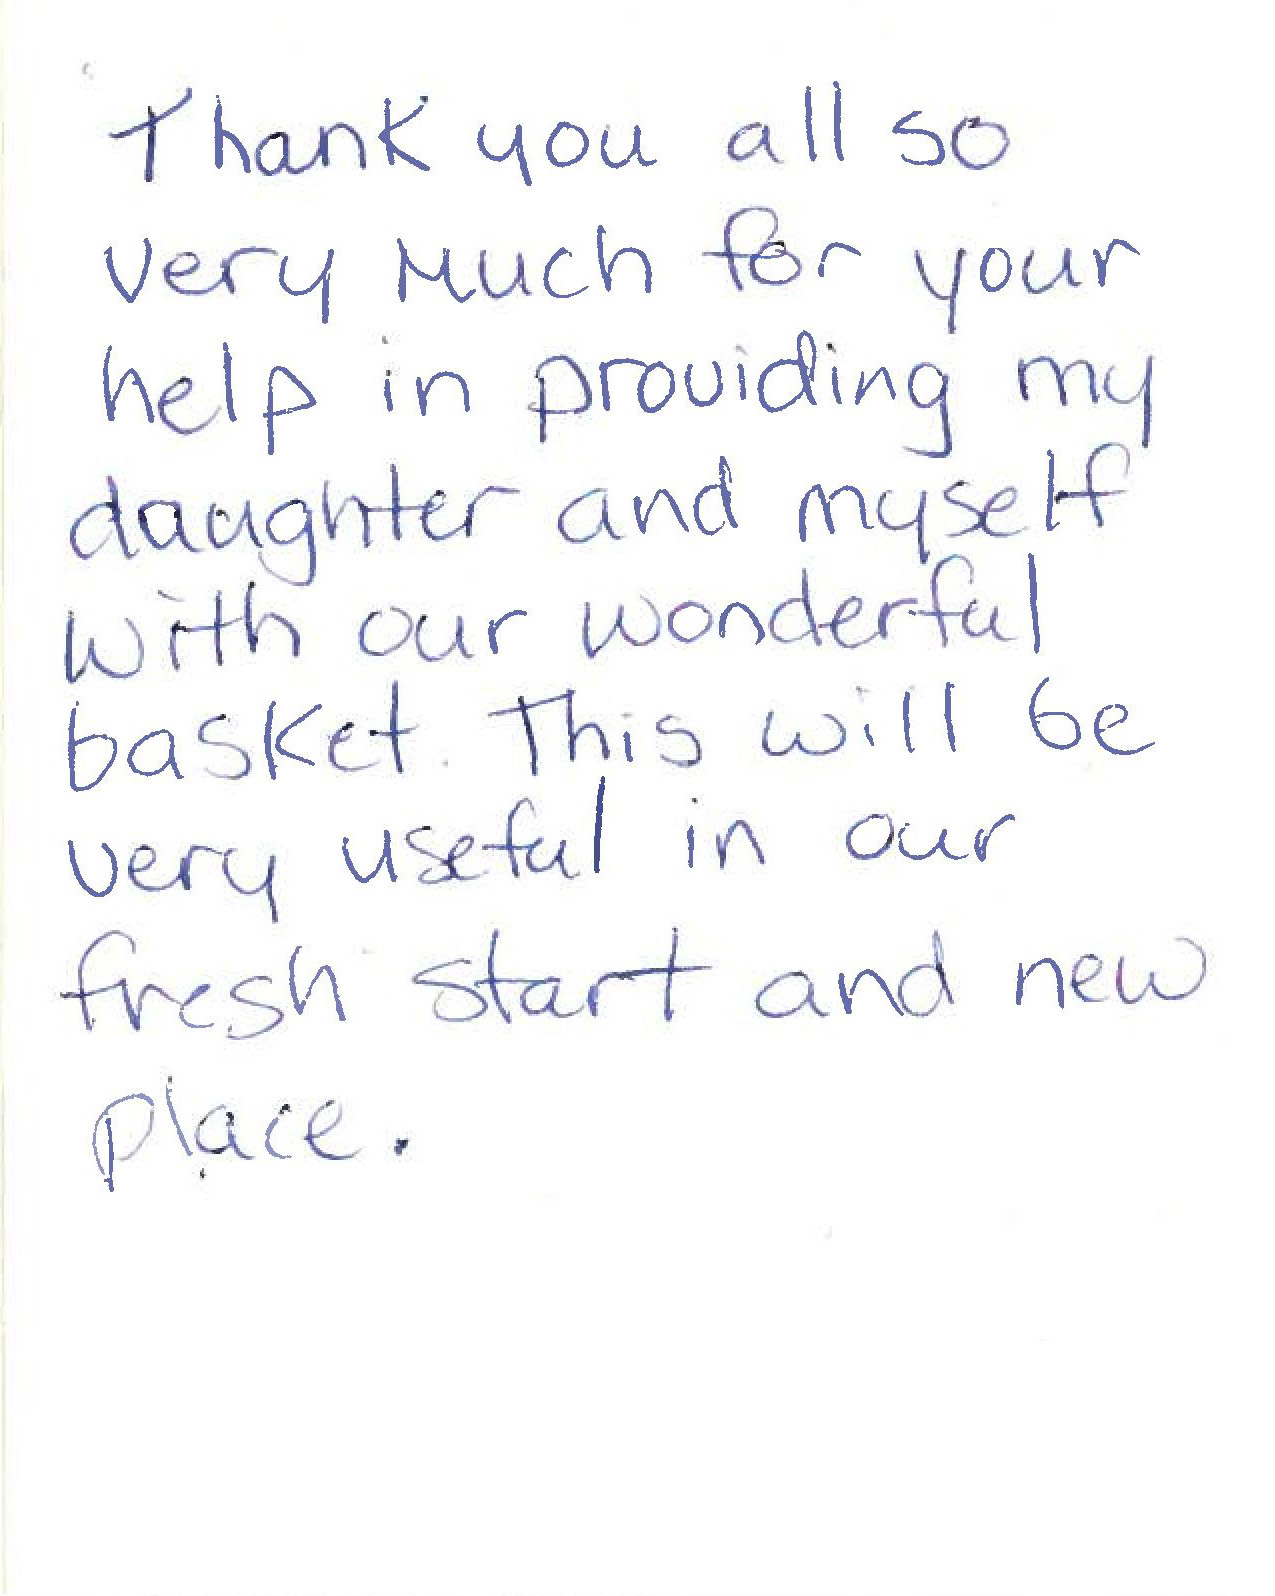 Thank you all so
very much for your
help in providing my
daughter and myself
with our wonderful
basket. This will be
very useful in our
fresh start and new
place.